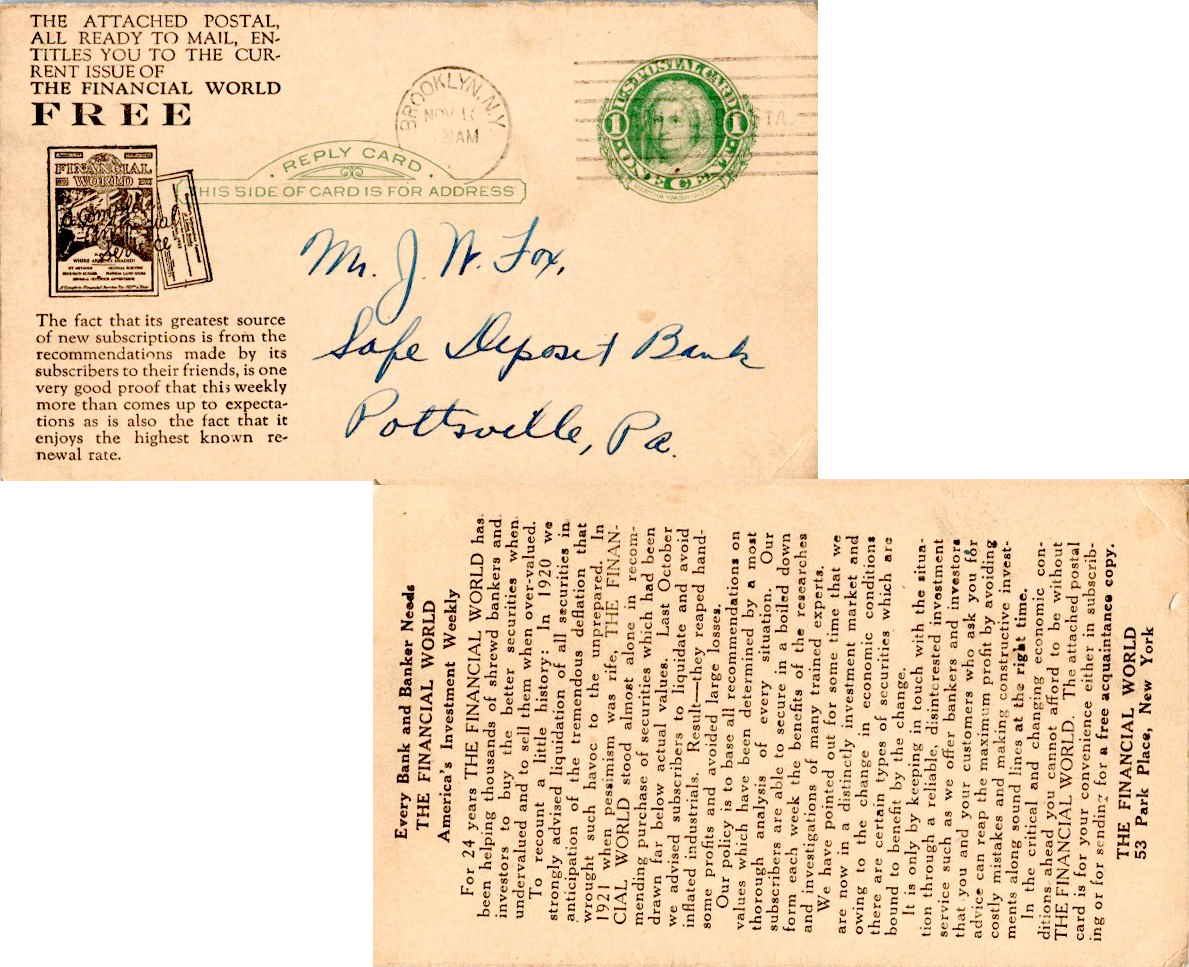 THE ATTACHED POSTAL,
ALL READY TO MAIL, EN-
TITLES YOU TO THE CUR-
RENT ISSUE OF
THE FINANCIAL WORLD
FREE
BROOKLYN, N.Y.
NOV
AM
U.S. POSTAL CARD
1 1
ONE CENT
STA.
REPLY CARD
THIS SIDE OF CARD IS FOR ADDRESS
FINANCIAL
WORLD
a Complete
Financial
Service
Mr. J. W. Fox,
Safe Deposit Bank
Pottsville, Pa.
The fact that its greatest source
of new subscriptions is from the
recommendations made by its
subscribers to their friends, is one
very good proof that this weekly
more than comes up to expecta-
tions as is also the fact that it
enjoys the highest known re-
newal rate.
Every Bank and Banker Needs
THE FINANCIAL WORLD
America's Investment Weekly
For 24 years THE FINANCIAL WORLD has
been helping thousands of shrewd bankers and
investors to buy the better securities when
undervalued and to sell them when over-valued.
To recount a little history: In 1920 we
strongly advised liquidation of all securities in
anticipation of the tremendous deflation that
wrought such havoc to the unprepared. In
1921 when pessimism was rife, THE FINAN-
CIAL WORLD stood almost alone in recom-
mending purchase of securities which had been
drawn far below actual values. Last October
we advised subscribers to liquidate and avoid
inflated industrials. Result—they reaped hand-
some profits and avoided large losses.
Our policy is to base all recommendations on
values which have been determined by a most
thorough analysis of every situation. Our
subscribers are able to secure in a boiled down
form each week the benefits of the researches
and investigations of many trained experts.
We have pointed out for some time that we
are now in a distinctly investment market and
owing to the change in economic conditions
there are certain types of securities which are
bound to benefit by the change.
It is only by keeping in touch with the situa-
tion through a reliable, disinterested investment
service such as we offer bankers and investors
that you and your customers who ask you for
advice can reap the maximum profit by avoiding
costly mistakes and making constructive invest-
ments along sound lines at the right time.
In the critical and changing economic con-
ditions ahead you cannot afford to be without
THE FINANCIAL WORLD. The attached postal
card is for your convenience either in subscrib-
ing or for sending for a free acquaintance copy.
THE FINANCIAL WORLD
53 Park Place, New York